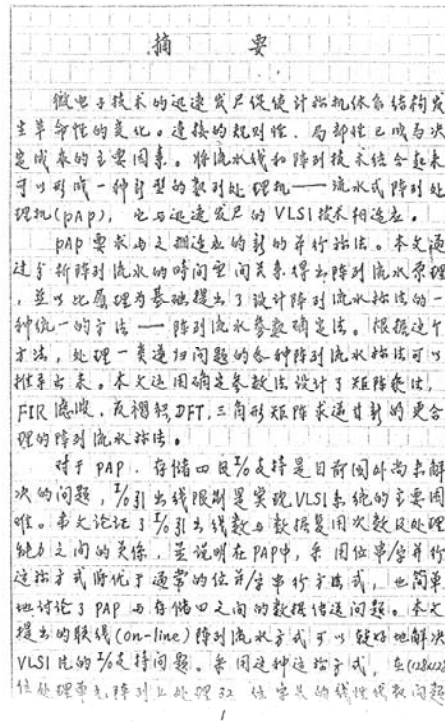 摘 要
微电子技术的迅速发展促使计算机体系结构发
生革命性的变化。连接的规则性、局部性已成为决
定成本的主要因素。将流水线和阵列技术结合起来
可以形成一种新型的数列处理机——流水式阵列处
理机(PAP),它与迅速发展的VLSI技术相适应。
PAP要求与之相适应的新的并行算法。本文通
过分析阵列流水的时间空间关系得出阵列流水原理
,並以此原理为基础提出了设计阵列流水算法的一
种统一的方法——阵列流水参数确定法。根据这个
方法,处理一类递归问题的各种阵列流水算法可以
推导出来。本文运用确定参数法设计了矩阵乘法,
FIR滤波,反褶积,DFT,三角形矩阵求逆等新的更合
理的阵列流水算法。
对于PAP,存储四及I/O支持是目前国外尚未解
决的问题,I/O引出线限制是实现VLSI系统的主要困
难。本文论证了I/O引出线数与数据复用次数及处理
能力之间的关系,並说明在PAP中,采用位串/字并行
运算方式将优于通常的位并/字串行方法式,也简单
地讨论了PAP与存储四之间的数据传送问题。本文
提出的联线(on-line)阵列流水方式可以较好地解决
VLSI片的I/O支持问题。采用这种运算方式,在(128x128)
位处理单元阵列上处理32位字长的线性代数问题
1